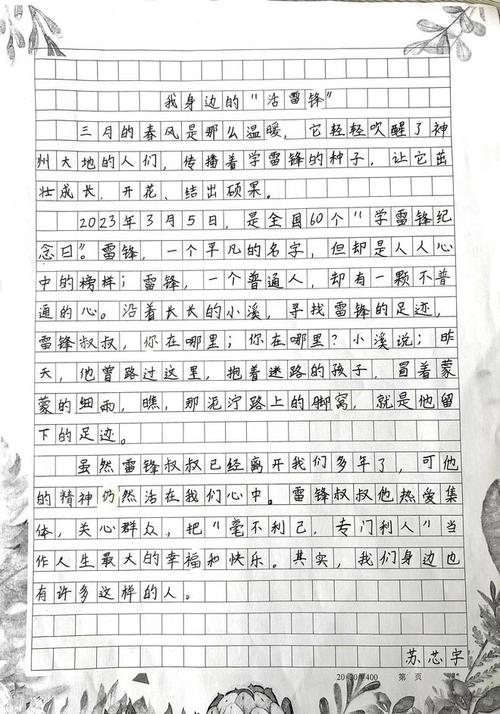 我身边的“活雷锋”
三月的春风是那么温暖，它轻轻吹醒了神
州大地的人们，传播着学雷锋的种子，让它茁
壮成长、开花、结出硕果。
2023年3月5日，是全国60个“学雷锋纪
念日”。雷锋，一个平凡的名字，但却是人人心
中的榜样；雷锋，一个普通人，却有一颗不普
通的心。沿着长长的小溪，寻找雷锋的足迹，
雷锋叔叔，你在哪里；你在哪里？小溪说：昨
天，他曾路过这里，抱着迷路的孩子，冒着蒙
蒙的细雨，瞧，那泥泞路上的脚窝，就是他留
下的足迹。
虽然雷锋叔叔已经离开我们多年了，可他
的精神仍然活在我们心中。雷锋叔叔他热爱集
体，关心群众，把“毫不利己，专门利人”当
作人生最大的幸福和快乐。其实，我们身边也
有许多这样的人。
苏芯宇
20×20=400 第 页